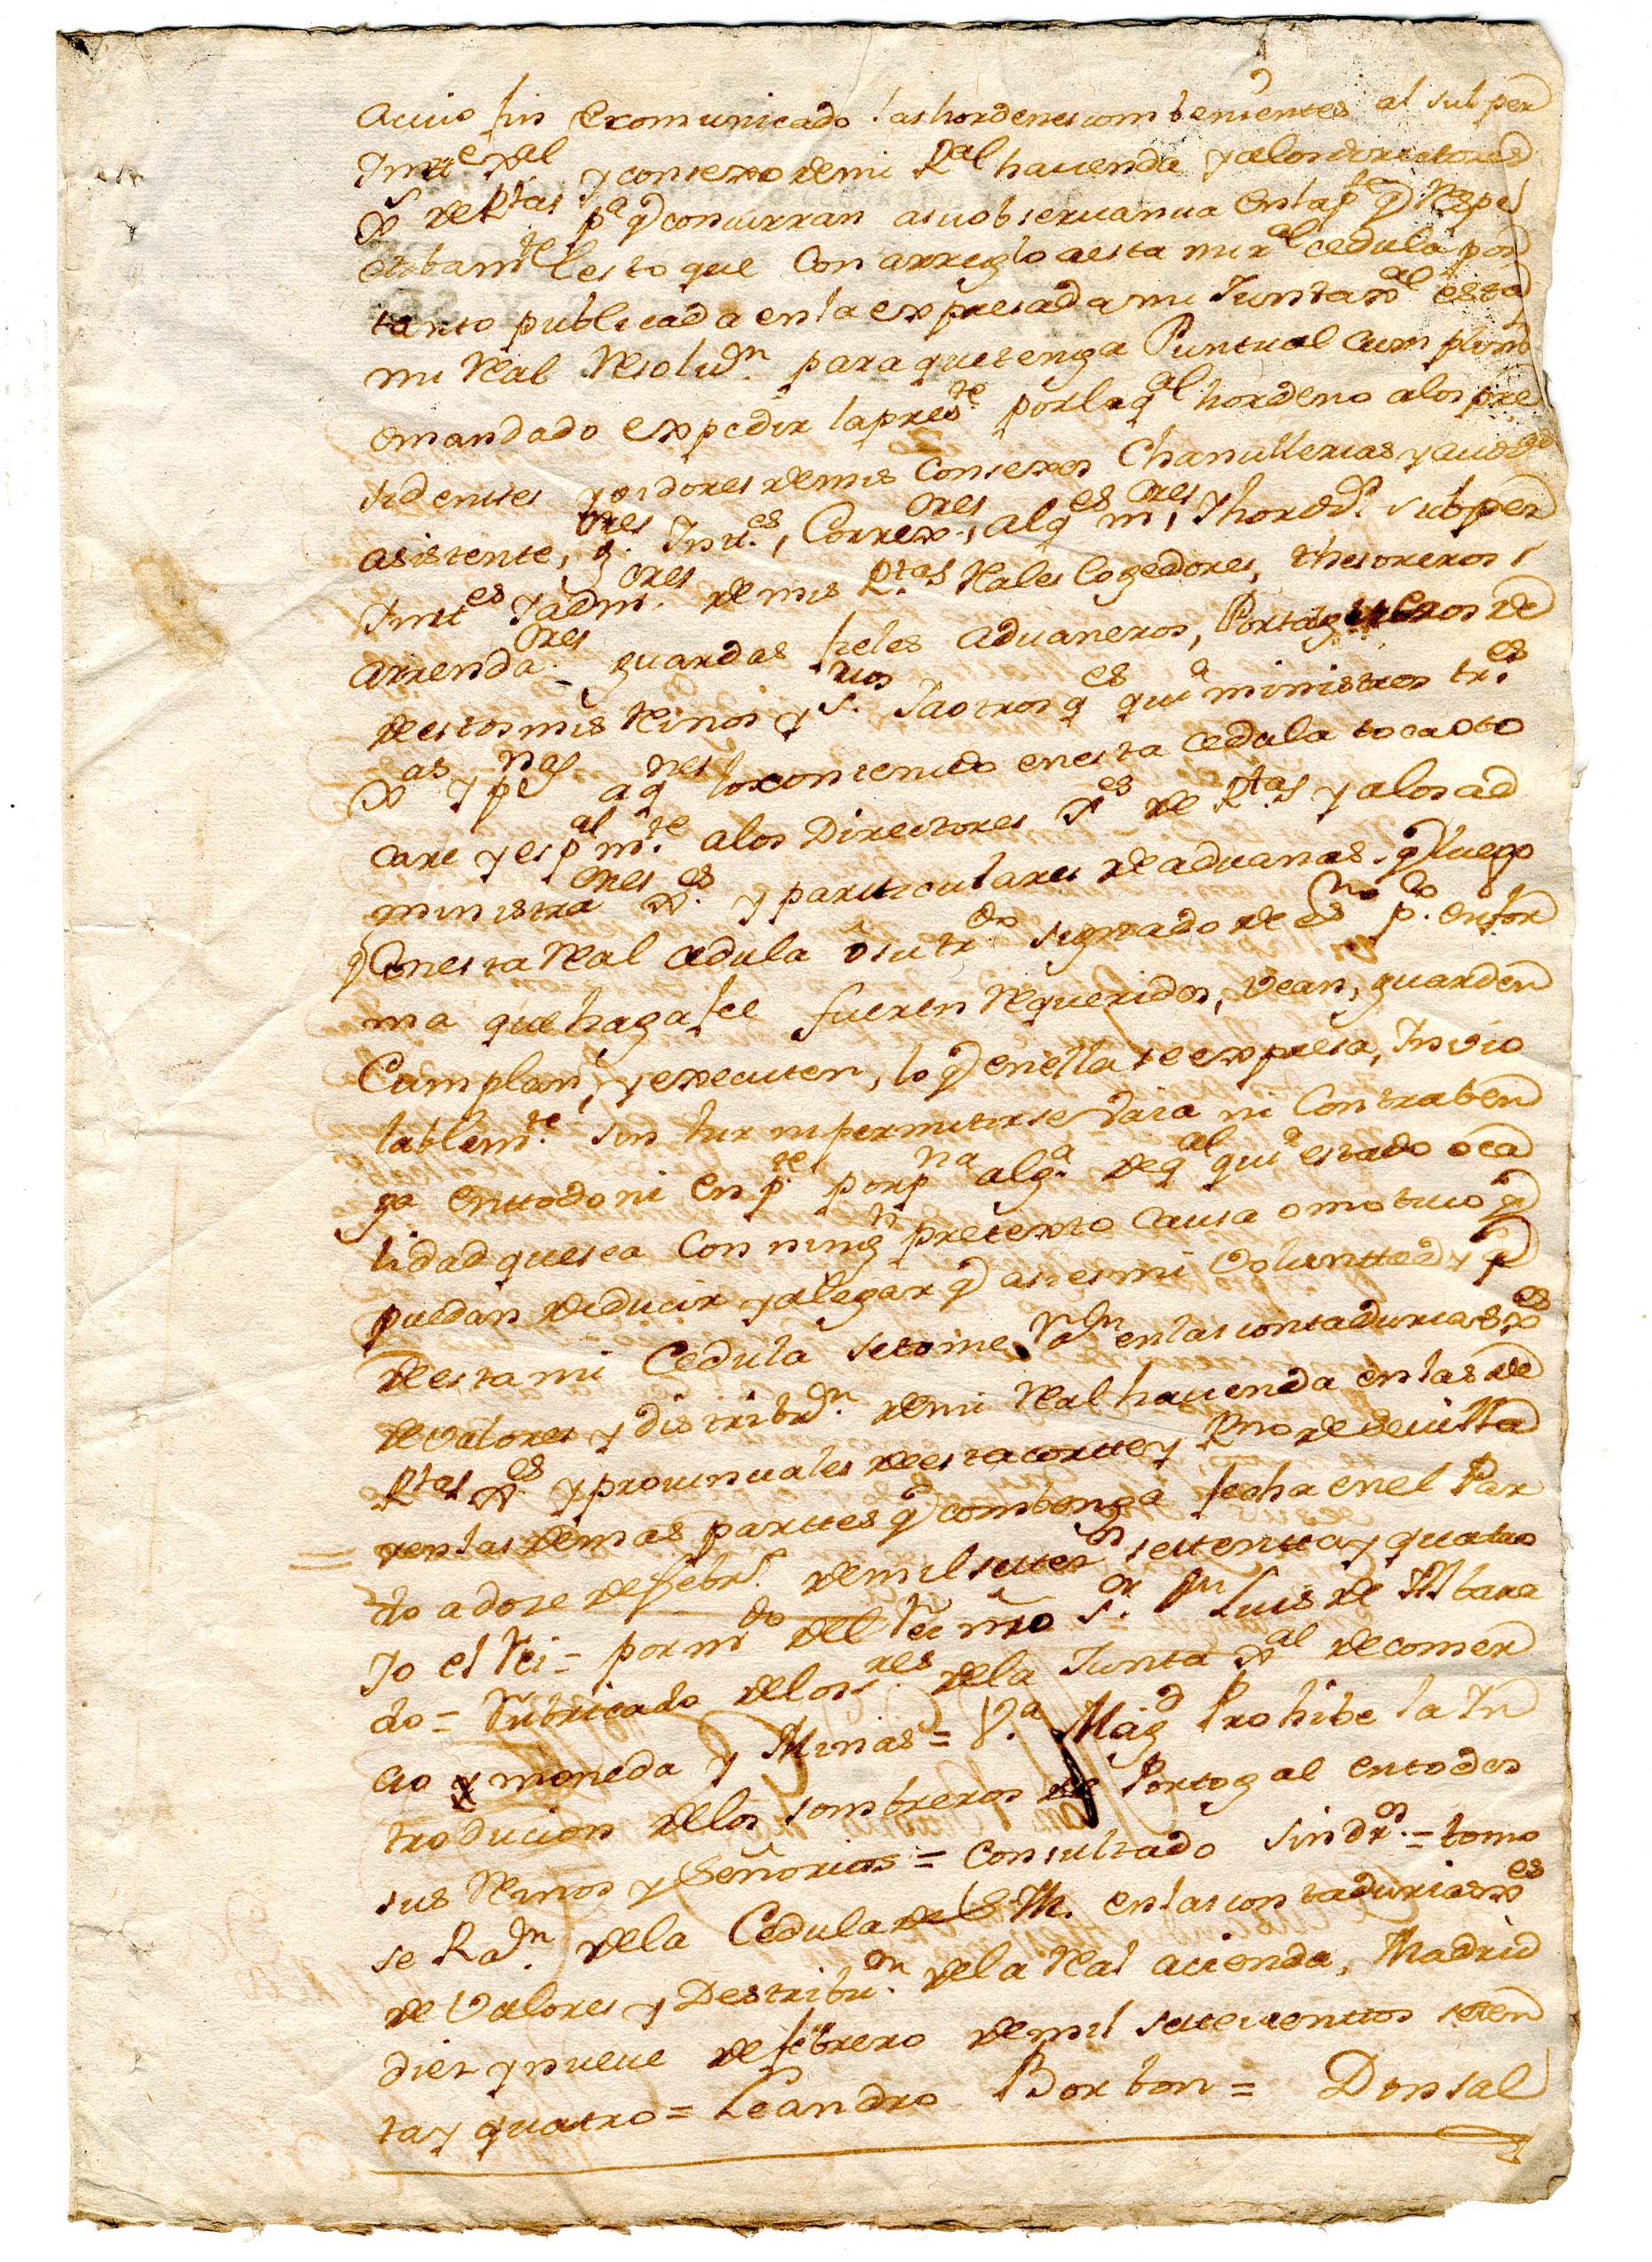 acuio fin e comunicado las hordenes combenientes al subper
Intte Gral y consexo de mi Ral hacienda y a los directores
Gs de Rtas pa q concurran a su observancia en la pte q Respe
ctibamte les to que con arreglo a esta mi rl cedula por
tanto publicada en la expresada mi Junta Gal esta
mi Real Resoludn para que tenga Puntual cumplimto
e mandado expedir la preste por la qal hordeno a los pre
sidentes y oidores de mis Consexos Chancillerias y audas
asistente, gres Intes, Correxores, alqes mres, y hordos subper
Inttes y admores de mis Rtas Rales Cogedores, thesoreros,
arrendaores guardas fieles aduaneros, Portazgueros de
de estos mis Reinos y Srios y a otros qes quia ministros tres
Gas y pnas a qnes lo contenido en esta cedula toca o to
care y espalmte a los Directores Ges de Rtas y a los ad
ministraores Ges y particulares de aduanas q luego
q Con esta Real cedula o su trdo signado de esno pco en for
ma que haga fee fueren Requeridos, vean, guarden
Cumplan, y executen, lo q en ella se expresa, Invio
lablemte sin hir ni permitir se vaia ni Contraben
ga en ttodo ni en pte por pna alga de qal quia estado o ca
lidad que sea con ningn pretexto causa o motivo q
puedan deducir y alegar q asi es mi Voluntta y q
de esta mi Cedula se tome Radn en las contadurias Ges
de valores y distribudn de mi Real hacienda en las de
Rtas Ges y provinciales de esta cortte y Rno de Sevilla
y en las demas parttes q combenga fecha en el Par
do a doze de febro de mil settesos settentta y quatro
Yo el Rei = por mdo del Rei nro Sor Dn Luis de Albara
do = Rubricado de los res de la Junta Gal de comer
cio y moneda y Minas = Va Magd Prohibe la In
troducion de los sombreros de Portogal en todos
sus Reinos y Señorios = Consultado sin dros = tomo
se Radn de la Cedula de S. M. en las contadurias Ges
de Valores y Destribuon de la Real acienda, Madrid
diez y nueve de febrero de mil settecienttos seten
ta y quatro = Leandro Borbon = Don Sal